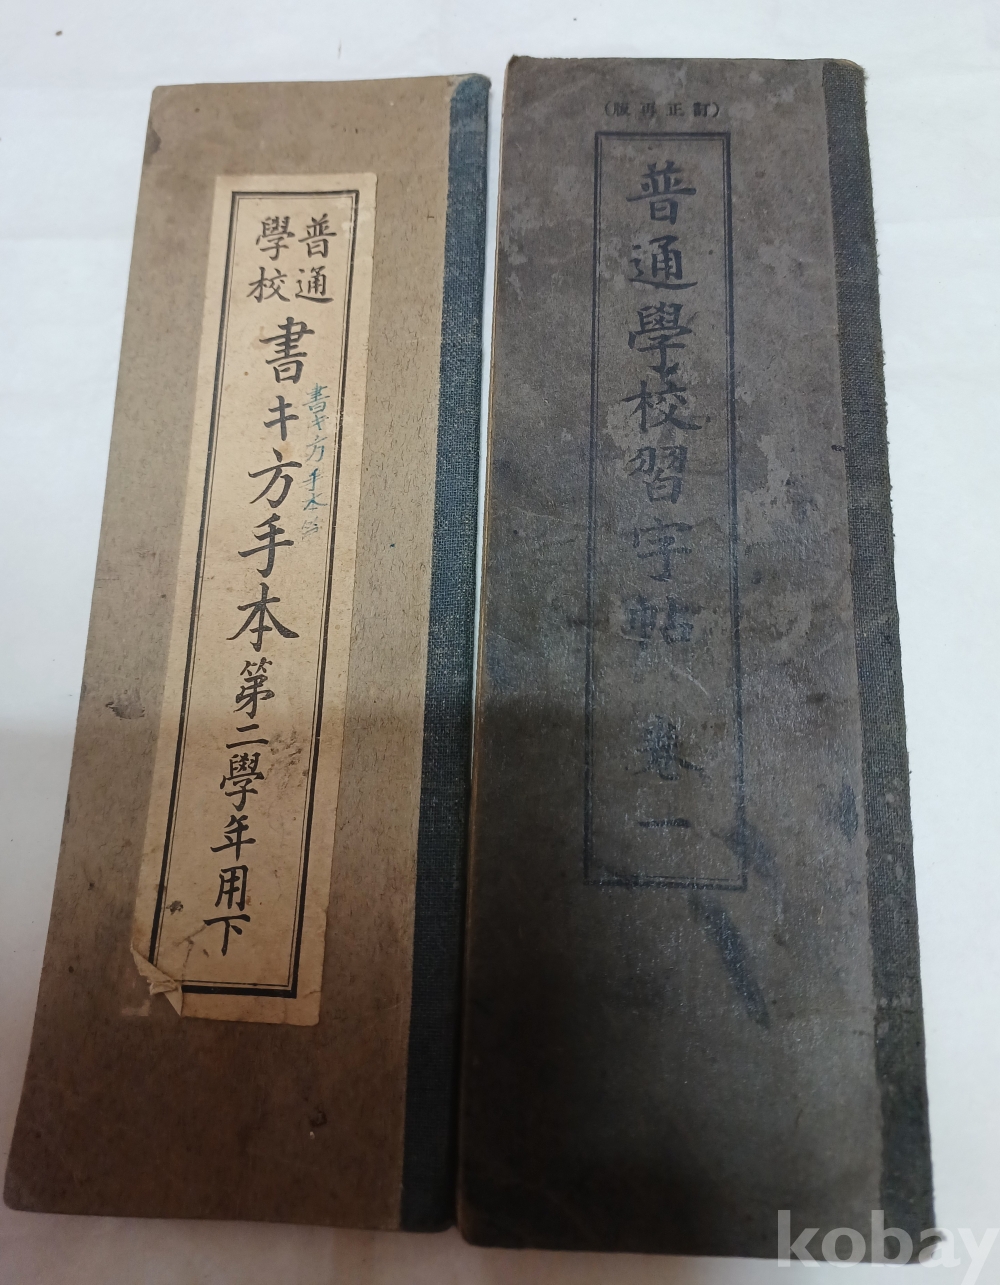 普通
學校
書キ方手本第二學年用下
書キ方手本
(訂正再版)
普通學校習字帖 卷一
kobay